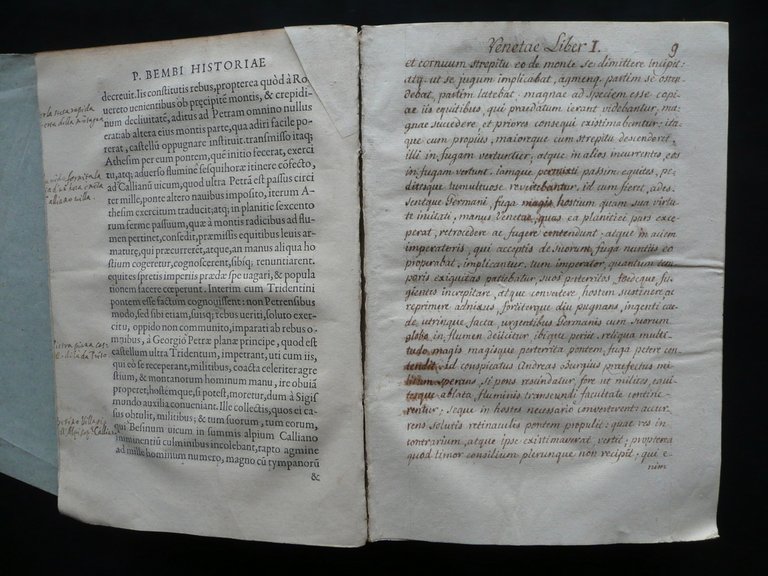 P. BEMBI HISTORIAE
decreuit. Iis constitutis rebus, propterea quòd à Ro
uereto uenientibus ob præcipitē montis, & crepidi-
num decliuitatē, aditus ad Petram omnino nullus
erat: ab altera eius montis parte, qua adiri facile po-
terat, castellū oppugnare instituit. transmisso itaq;
Athesim per eum pontem, quē initio fecerat, exerci
tu, atq; aduerso flumine sesquihoræ itinere cōfecto,
ad Callianū uicum, quod ultra Petrā est passus circi
ter mille, ponte altero nauibus imposito, iterum A-
thesim exercitum traducit, atq; in planitie sexcento
rum ferme passuum, quæ à montis radicibus ad flu-
men pertinet, consedit, præmissis equitibus leuis ar-
maturæ, qui præcurreret, atque, an manus aliqua ho
stium cogeretur, cognoscerent, sibiq; renuntiarent.
equites spretis imperiis prædæ spe uagari, & popula
tionem facere cœperunt. Interim cum Tridentini
pontem esse factum cognouissent: non Petrensibus
modo, sed sibi etiam, suisq; rebus ueriti, soluto exer-
citu, oppido non communito, imparati ab rebus o-
mnibus, à Georgio Petræ planæ principe, quod est
castellum ultra Tridentum, impetrant, uti cum iis,
qui eò se receperant, militibus, coacta celeriter agre
stium, & montanorum hominum manu, ire obuiā
properet, hostemque, si potest, moretur, dum à Sigis
mundo auxilia conueniant. Ille collectis, quos ei ca-
sus obtulit, militibus; & tum suorum, tum eorum,
qui Besinum uicum in summis alpium Calliano
imminentiū culminibus incolebant, tapto agmine
ad mille hominum numero, magno cū tympanorū
&
Venetae Liber I. 9
et cornuum strepitu eo de monte se dimittere incipit:
atq; ut se jugum implicabat, agmenq; partim se osten
debat, partim latebat, magnae ad speciem esse copi-
ae iis equitibus, qui praedatum ierant videbantur, ma-
gnae succedere, et priores consequi existimabantur: ita-
que cum propius, maioreque cum strepitu descenderet,
illi in fugam vertuntur, atque in alios incurrentes, eos
in fugam vertunt. iamque permixti passim equites, pe-
ditesque tumultuose revertebantur, id cum fieret, ades-
sentque Germani, fuga magis hostium quam sua virtu-
te invitati, manus Venetae, quas ea planitiei pars exce-
perat, retrocedere ac fugere contendunt, atque in aciem
imperatoris, qui acceptis de suorum fuga nuntiis eo
properabat, implicantur. tum imperator, quantum tem-
poris exiquitas patiebatur, suos perterritos, foedeque fu-
gientes increpitare, atque convertere, hostem sustinere ac
reprimere adnixus, fortiterque diu pugnans, ingenti cae-
de utrinque facta, urgentibus Germanis cum suorum
globo in flumen deiicitur, ibique periit. reliqua multi-
tudo magis magisque perterrita pontem, fuga petere con-
tendit. id conspicatus Andreas Burgius praefectus mi-
litum sperans, si pons rescindatur, fore ut milites, equi-
tesque ablata, fluminis transeundi facultate contine-
rentur; seque in hostes necessario converterent: accur-
rens solutis retinaculis pontem propulit: quae res in
contrarium, atque ipse existimaverat vertit; propterea
quod timor consilium plerunque non recipit; qui e
nim